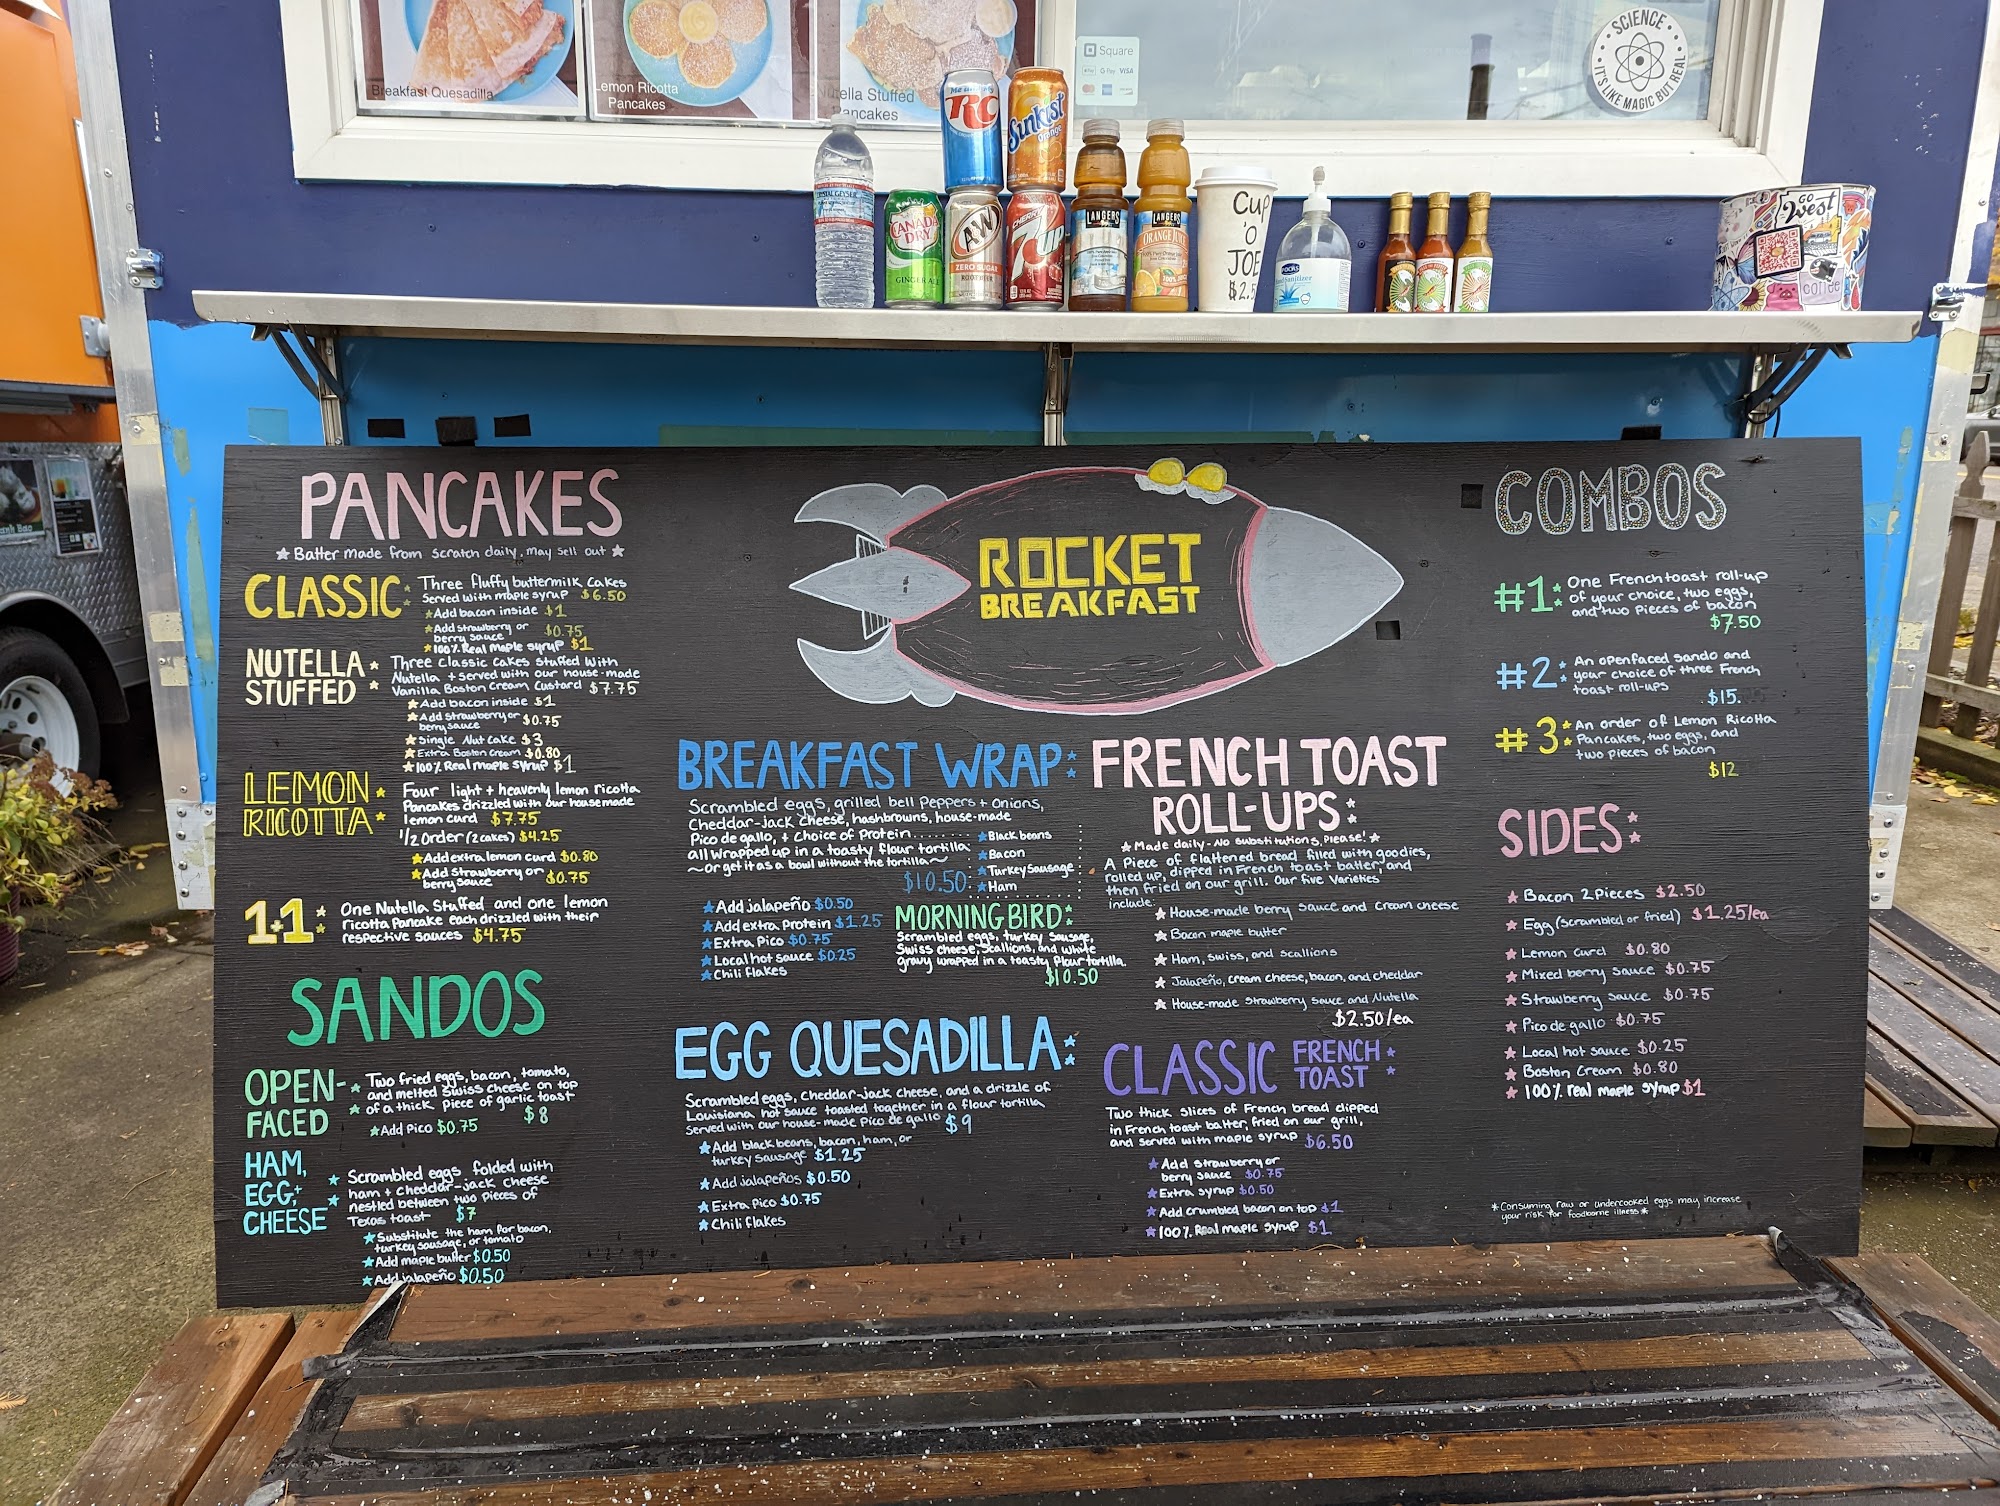 Breakfast Quesadilla
Lemon Ricotta
Pancakes
Stuffed
Pancakes
Square
G Pay VISA
SCIENCE
IT'S LIKE MAGIC BUT REAL
RC
Sunkist
Orange
CRYSTAL GEYSER
CANADA
DRY
GINGER ALE
A&W
ZERO SUGAR
ROOT BEER
CHERRY
7UP
LANGERS
LANGERS
ORANGE JUICE
100%
Cup
'O
JOE
$2.5
GO
West
coffee
PANCAKES
★ Batter made from scratch daily, may sell out ★
CLASSIC: Three fluffy buttermilk cakes
Served with maple syrup $6.50
★ Add bacon inside $1
★ Add strawberry or
berry sauce $0.75
★ 100% Real maple syrup $1
NUTELLA STUFFED ★ Three classic cakes stuffed with
Nutella + served with our house-made
Vanilla Boston Cream Custard $7.75
★ Add bacon inside $1
★ Add strawberry or
berry sauce $0.75
★ Single Nut cake $3
★ Extra Boston cream $0.80
★ 100% Real maple syrup $1
LEMON RICOTTA ★ Four light + heavenly lemon ricotta
Pancakes drizzled with our housemade
lemon curd $7.75
1/2 Order (2 cakes) $4.25
★ Add extra lemon curd $0.80
★ Add strawberry or
berry sauce $0.75
1+1 ★ One Nutella Stuffed and one lemon
ricotta Pancake each drizzled with their
respective sauces $4.75
SANDOS
OPEN-FACED ★ Two fried eggs, bacon, tomato,
and melted Swiss cheese on top
of a thick piece of garlic toast
$8
★ Add Pico $0.75
HAM, EGG, + CHEESE ★ Scrambled eggs folded with
ham + cheddar-jack cheese
nestled between two pieces of
Texas toast $7
★ Substitute the ham for bacon,
turkey sausage, or tomato
★ Add maple butter $0.50
★ Add jalapeño $0.50
ROCKET
BREAKFAST
BREAKFAST WRAP:
Scrambled eggs, grilled bell Peppers + onions,
Cheddar-jack cheese, hashbrowns, house-made
Pico de gallo, + choice of Protein........
all wrapped up in a toasty flour tortilla
~or get it as a bowl without the tortilla~
$10.50
★ Black beans
★ Bacon
★ Turkey Sausage
★ Ham
★ Add jalapeño $0.50
★ Add extra Protein $1.25
★ Extra Pico $0.75
★ Local hot sauce $0.25
★ Chili flakes
MORNING BIRD:
Scrambled eggs, turkey Sausage,
Swiss cheese, Scallions, and white
gravy wrapped in a toasty flour tortilla.
$10.50
EGG QUESADILLA:
Scrambled eggs, Cheddar-jack cheese, and a drizzle of
Louisiana hot sauce toasted together in a flour tortilla
Served with our house-made Pico de gallo $9
★ Add black beans, bacon, ham, or
turkey sausage $1.25
★ Add jalapeños $0.50
★ Extra Pico $0.75
★ Chili flakes
FRENCH TOAST
ROLL-UPS:
★ Made daily - No substitutions, Please! ★
A Piece of flattened bread filled with goodies,
rolled up, dipped in French toast batter, and
then fried on our grill. Our five varieties
include:
★ House-made berry sauce and cream cheese
★ Bacon maple butter
★ Ham, swiss, and scallions
★ Jalapeño, cream cheese, bacon, and cheddar
★ House-made strawberry sauce and Nutella
$2.50/ea
CLASSIC FRENCH TOAST
Two thick slices of French bread dipped
in French toast batter, fried on our grill,
and served with maple syrup $6.50
★ Add strawberry or
berry sauce $0.75
★ Extra syrup $0.50
★ Add crumbled bacon on top $1
★ 100% Real maple syrup $1
COMBOS
#1: One French toast roll-up
of your choice, two eggs,
and two pieces of bacon
$7.50
#2: An openfaced sando and
your choice of three French
toast roll-ups
$15.
#3 An order of Lemon Ricotta
Pancakes, two eggs, and
two pieces of bacon
$12
SIDES:
★ Bacon 2 Pieces $2.50
★ Egg (scrambled or fried) $1.25/ea
★ Lemon curd $0.80
★ Mixed berry sauce $0.75
★ Strawberry sauce $0.75
★ Pico de gallo $0.75
★ Local hot sauce $0.25
★ Boston Cream $0.80
★ 100% real maple syrup $1
* Consuming raw or undercooked eggs may increase
your risk for foodborne illness *